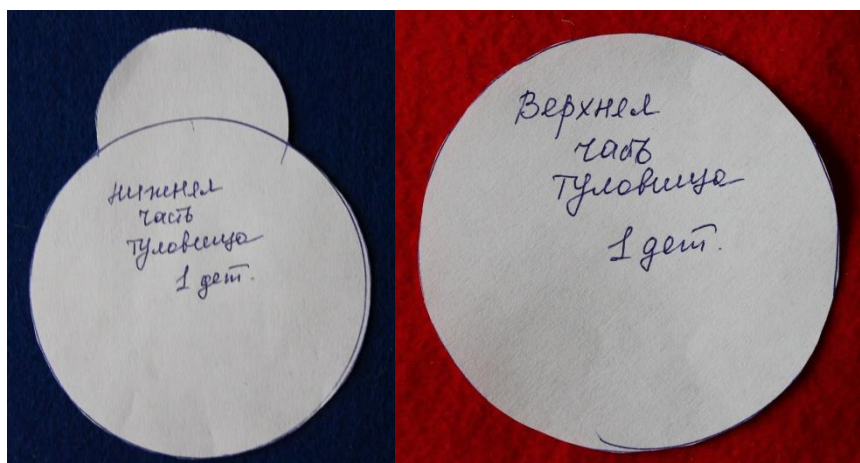 нижняя
часть
туловища
1 дет.
Верхняя
часть
туловища
1 дет.